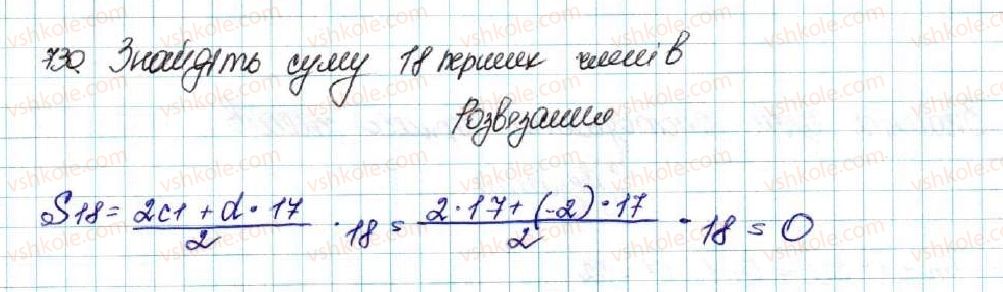 730. Знайдіть суму 18 перших членів
Розвязання
S18 = (2c1 + d • 17)/2 • 18 = (2 • 17 + (-2) • 17)/2 • 18 = 0
vshkole.com